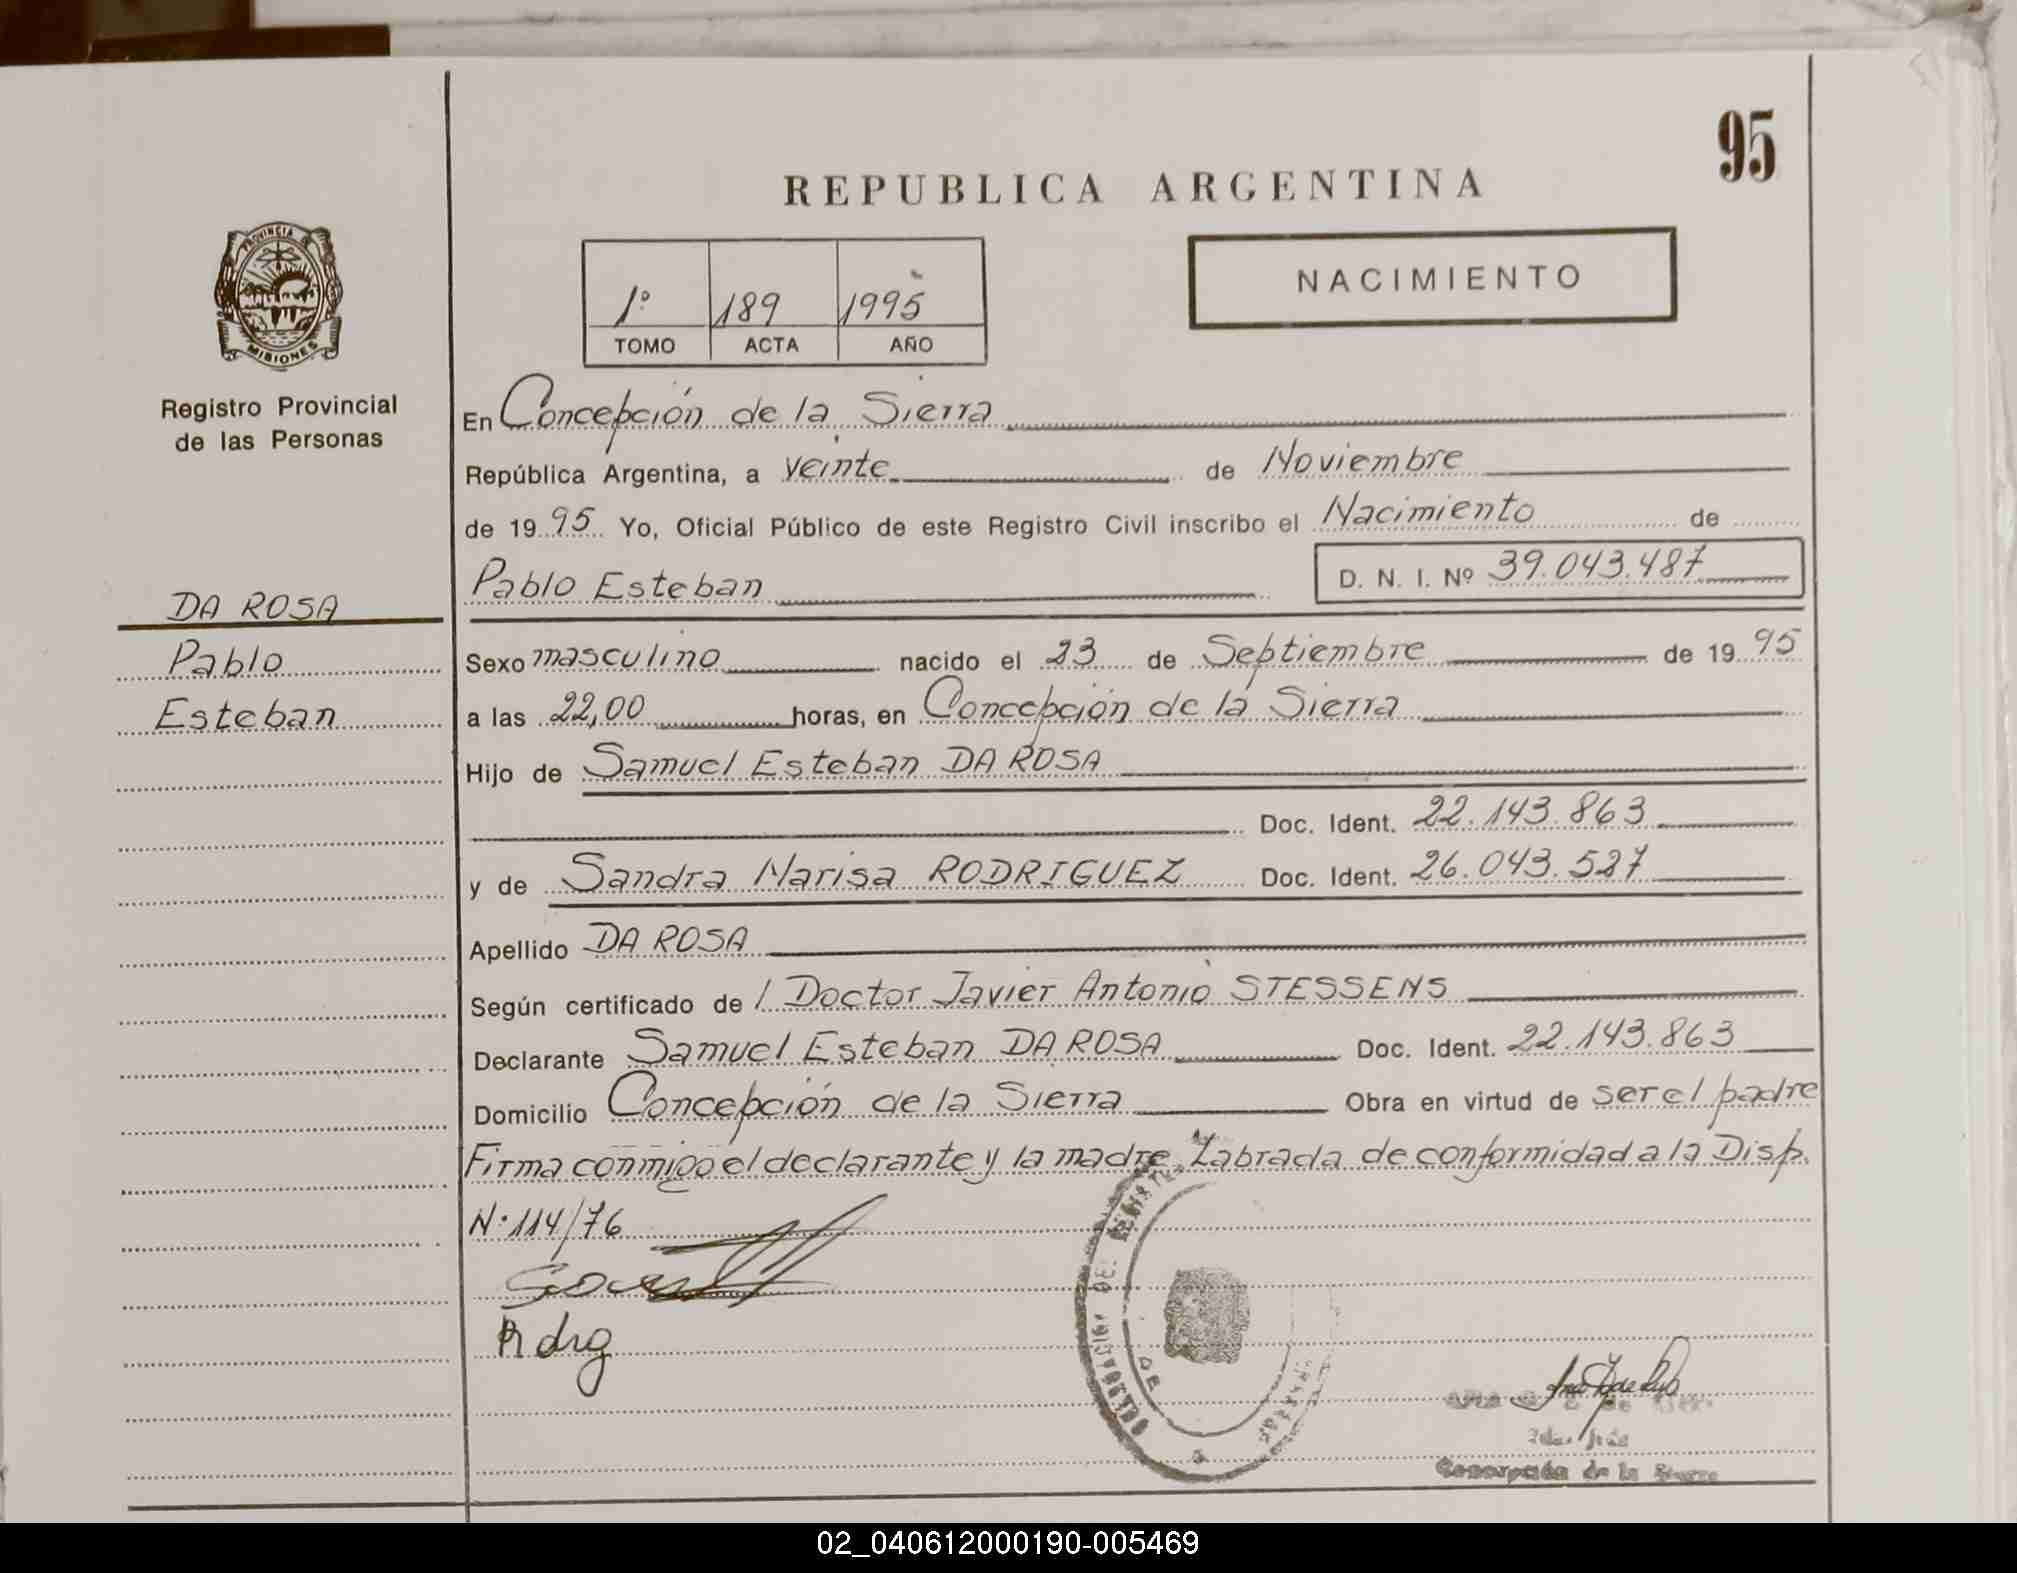 95
REPUBLICA ARGENTINA
PROVINCIA
MISIONES
Registro Provincial
de las Personas
1º 189 1995
TOMO ACTA AÑO
NACIMIENTO
En Concepción de la Sierra
República Argentina, a veinte de Noviembre
de 19 95 Yo, Oficial Público de este Registro Civil inscribo el Nacimiento de
Pablo Esteban D. N. I. Nº 39.043.487
DA ROSA
Pablo
Esteban
Sexo masculino nacido el 23 de Septiembre de 19 95
a las 22,00 horas, en Concepción de la Sierra
Hijo de Samuel Esteban DA ROSA
Doc. Ident. 22.143.863
y de Sandra Marisa RODRIGUEZ Doc. Ident. 26.043.527
Apellido DA ROSA
Según certificado de / Doctor Javier Antonio STESSENS
Declarante Samuel Esteban DA ROSA Doc. Ident. 22.143.863
Domicilio Concepción de la Sierra Obra en virtud de ser el padre
Firma conmigo el declarante y la madre Labrada de conformidad a la Disp.
N· 114/76
Rdrg
Concepción de la Sierra
02_040612000190-005469